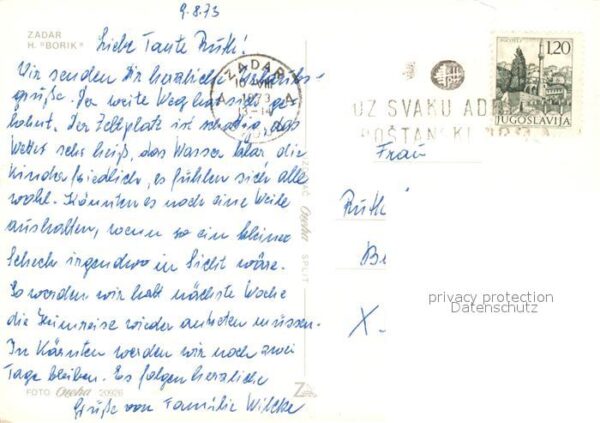 9.8.73
ZADAR
H. "BORIK"
Liebe Tante Ruth!
Wir senden Dir herzliche Urlaubs-
grüße. Der weite Weg hat sich ge-
lohnt. Der Zeltplatz ist schattig, das
Wetter sehr heiß, das Wasser klar, die
Kinder friedlich, es fühlen sich alle
wohl. Könnten es noch eine Weile
aushalten, wenn so ein kleiner
Scheck irgendwo in Sicht wäre.
So werden wir halt nächste Woche
die Heimreise wieder antreten müssen.
In Kärnten werden wir noch zwei
Tage bleiben. Es folgen herzliche
Grüße von Familie Wilcke
FOTO Oneha 20926
Oneha SPLIT
ZADAR
13-14
UZ SVAKU
POŠTANSKI
1,20
JUGOSLAVIJA
Frau
Ruth
X.
privacy protection
Datenschutz